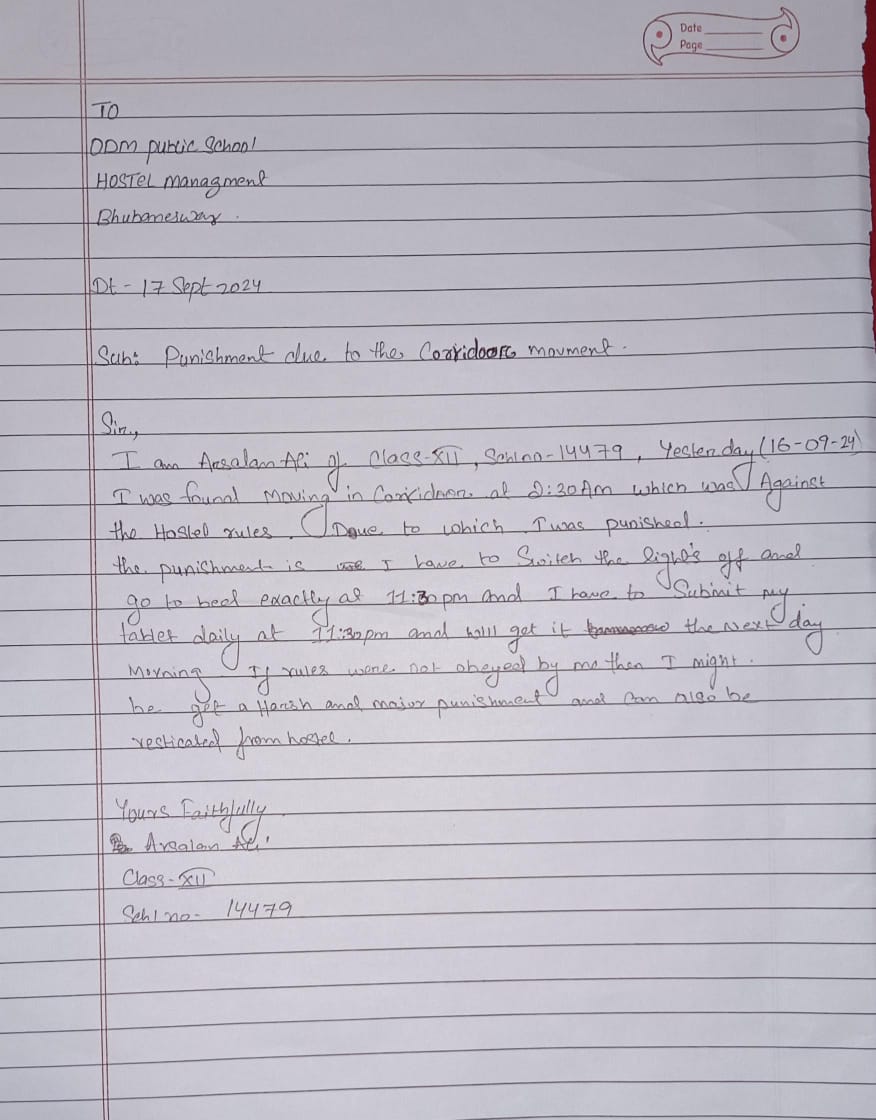 Date
Page
TO
ODM public School
HOSTEL Managment
Bhubaneswar.
Dt - 17 Sept 2024
Sub: Punishment due to the Corridoors movment.
Sir,
I am Arsalan Ali of Class-XII, Schlno-14479, Yesterday (16-09-24)
I was found moving in Corridoor at 2:30Am which was Against
the Hostel rules. Doue to which I was punished.
the punishment is I have to Switch the lights off and
go to bed exactly at 11:30 pm and I have to Submit my
tablet daily at 11:30pm and will get it the Next day
Morning. If rules were not obeyed by me then I might.
be get a Harsh and major punishment and can also be
resticated from hostel.
Yours Faithfully
Arsalan Ali
Class-XII
Schl no- 14479